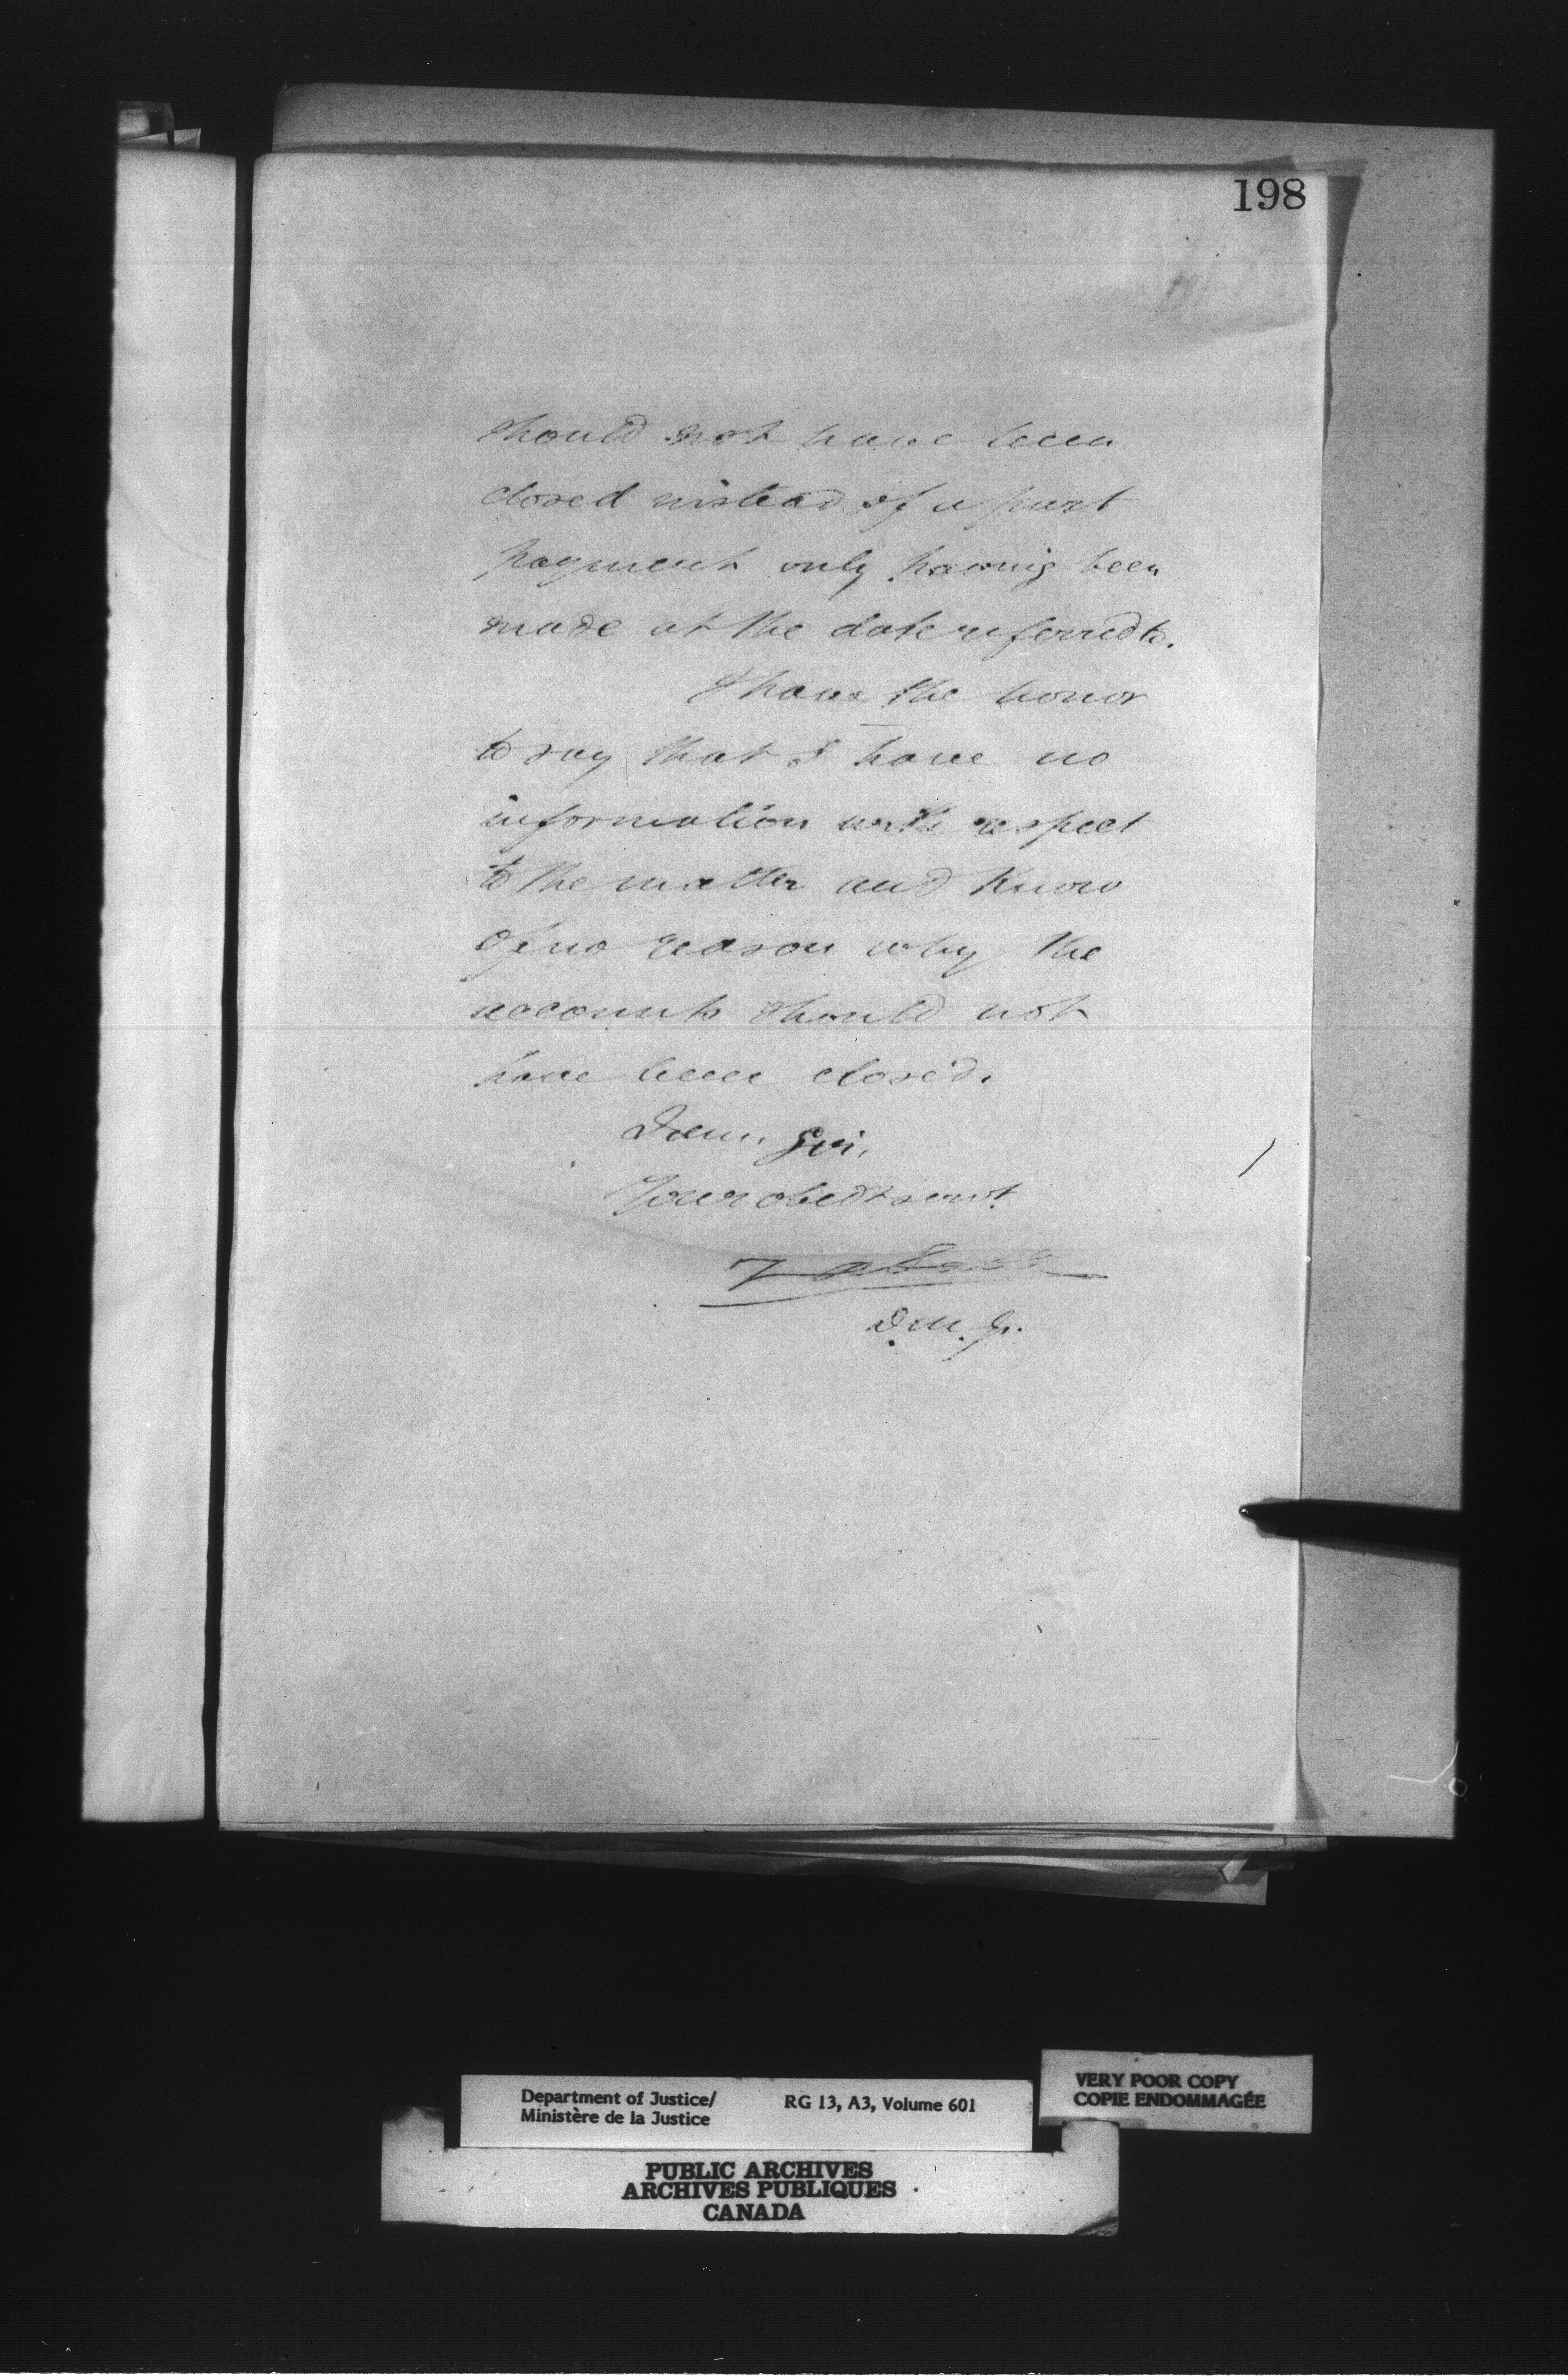 198
should not have been
closed instead of a part
payment only having been
made at the date referred to.
I have the honor
to say that I have no
information with respect
to the matter and know
of no reason why the
accounts should not
have been closed.
I am, Sir,
Your obedt servt
D.M.J.
Department of Justice/
Ministère de la Justice
RG 13, A3, Volume 601
VERY POOR COPY
COPIE ENDOMMAGÉE
PUBLIC ARCHIVES
ARCHIVES PUBLIQUES
CANADA